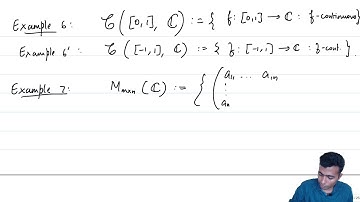 Example 6: 𝒞([0,1], ℂ) := { f: [0,1] → ℂ : f-continuous}
Example 6': 𝒞([-1,1], ℂ) := { f: [-1,1] → ℂ : f-cont. }.
Example 7: Mmxn (ℂ) := { ( a11 ... a1n
⋮
an